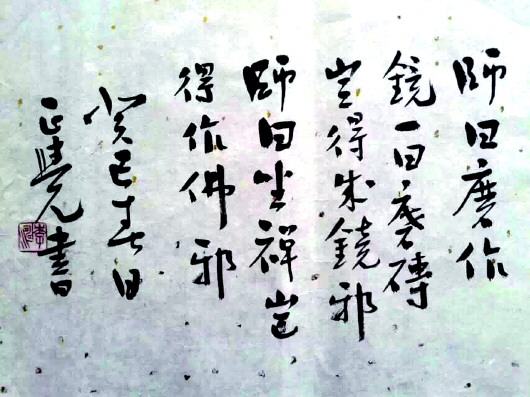 師曰磨作
鏡一曰磨磚
豈得成鏡邪
師曰坐禪豈
得作佛邪
癸巳春日
正覺書